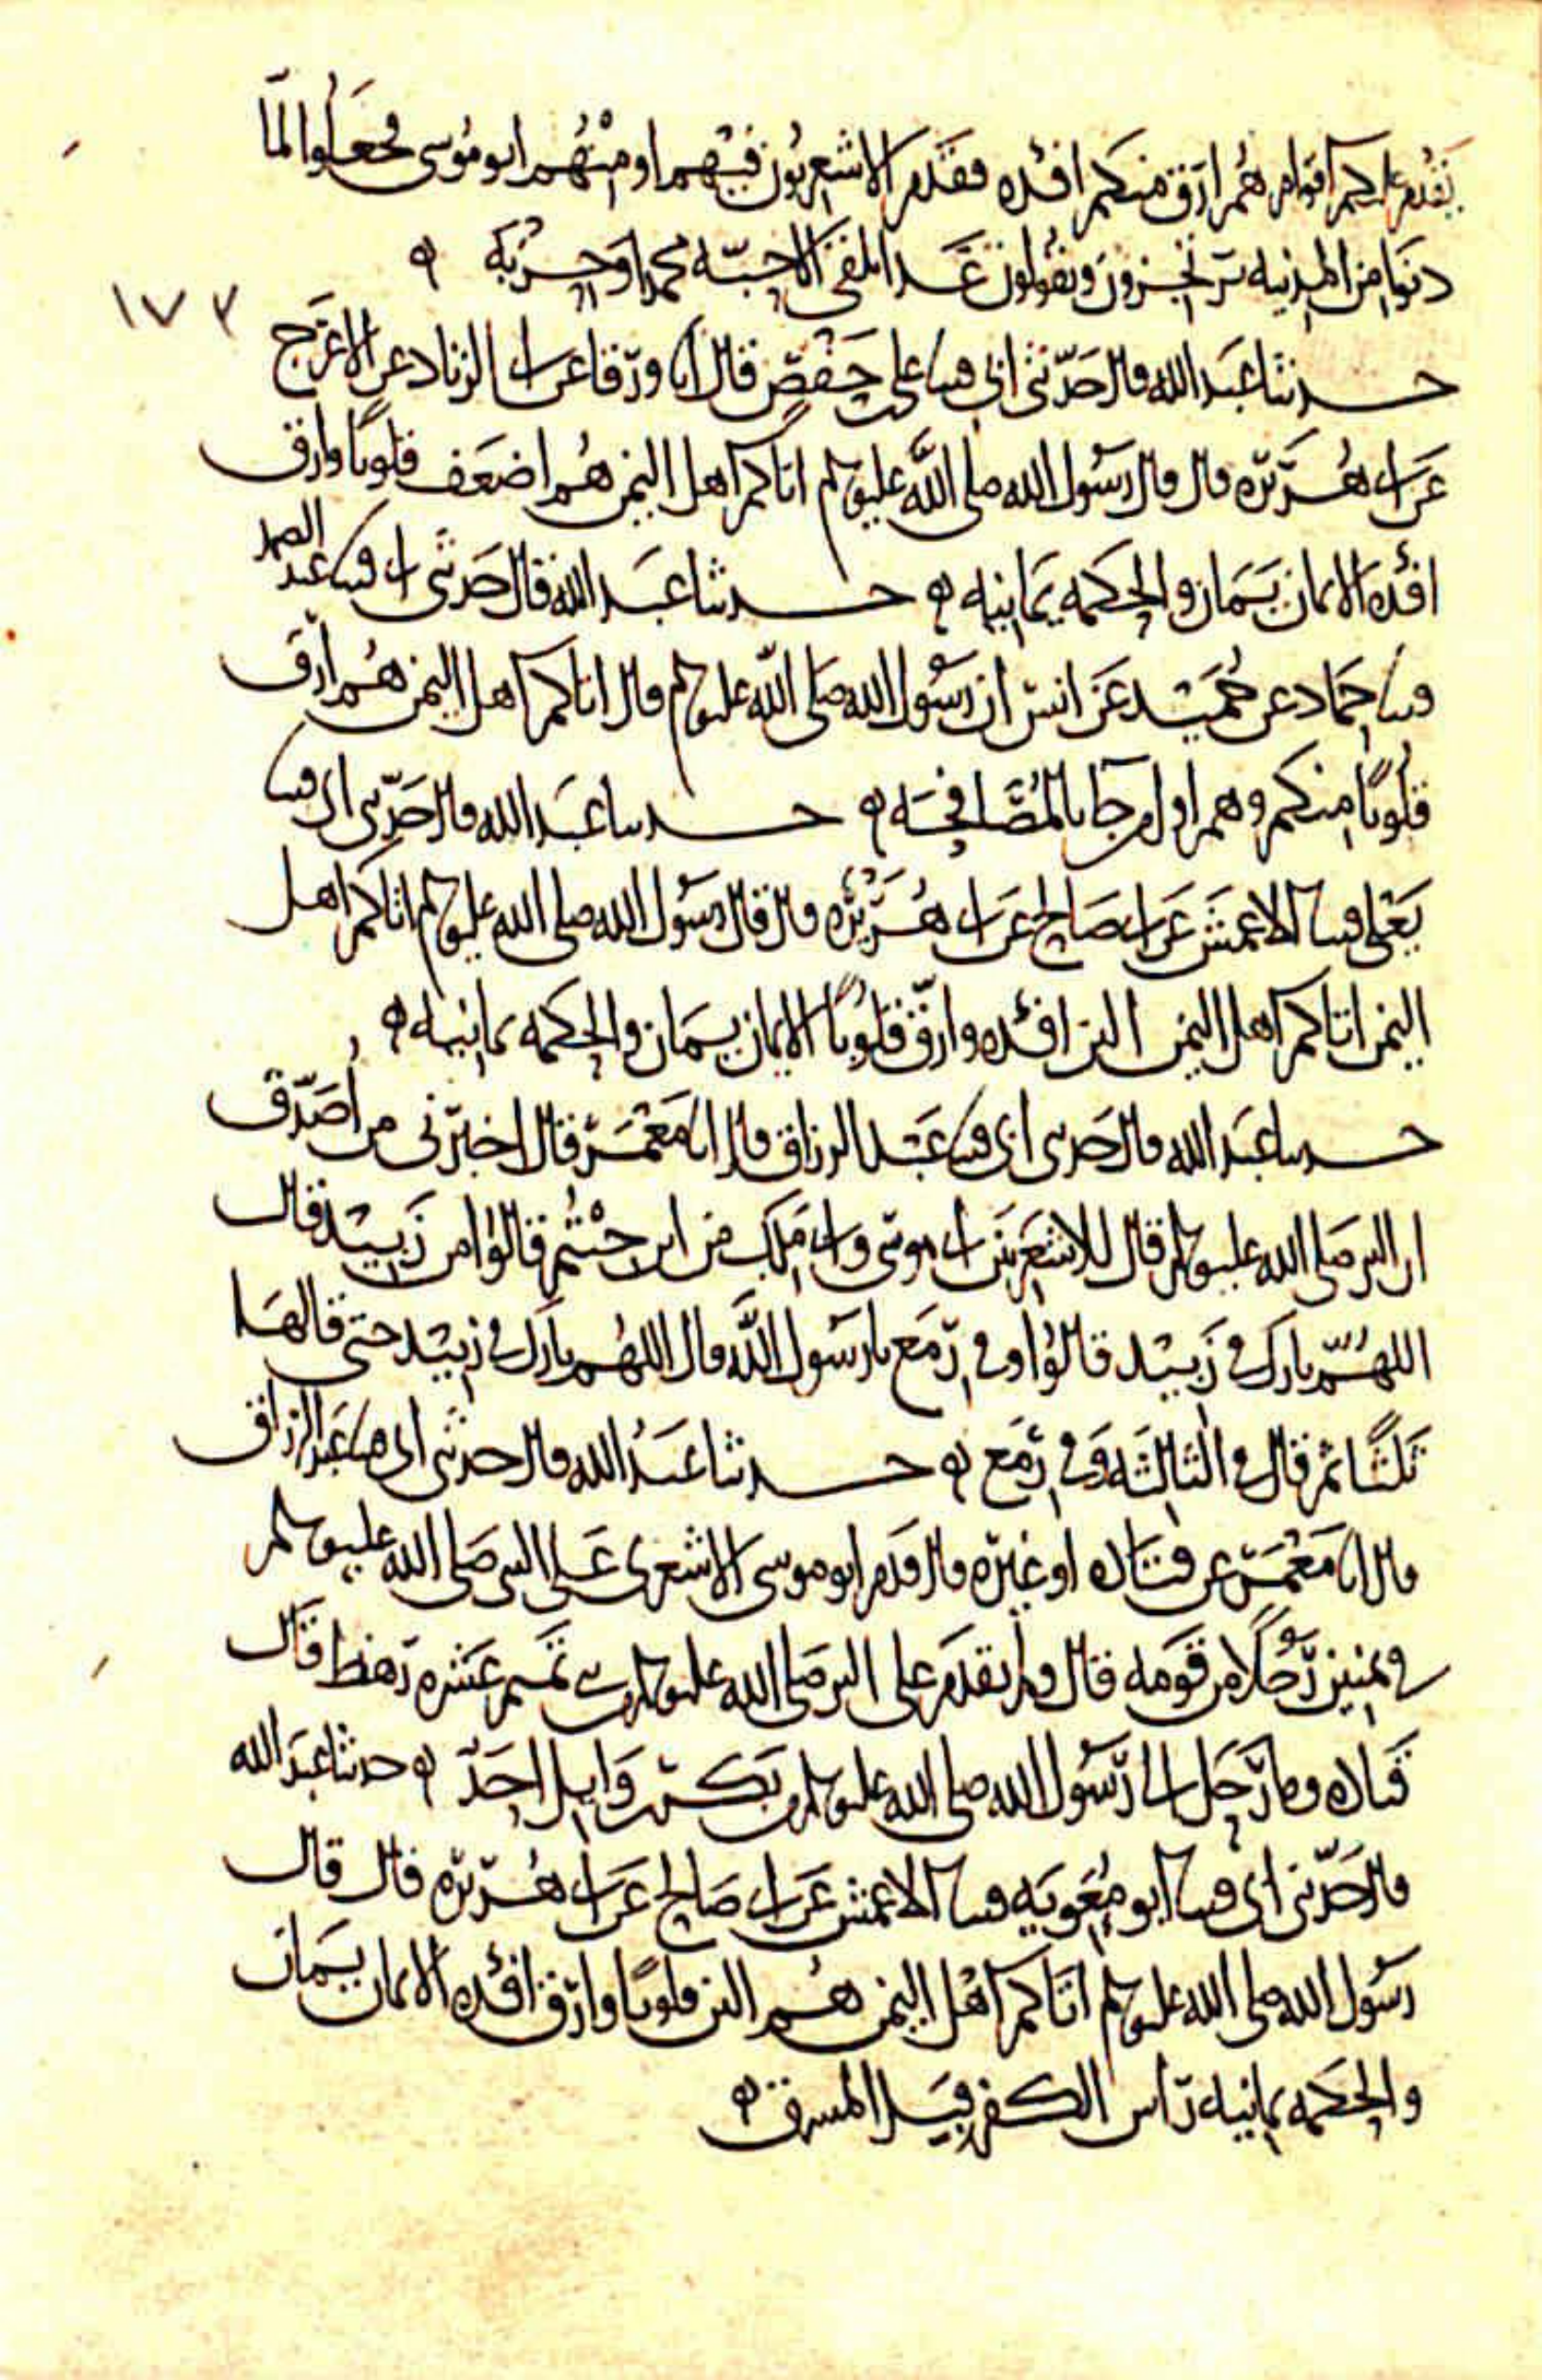 يقدم عليكم اقوام هُم ارَق منكم افئده فقدم الاشعريون فيهم او منهُم ابو موُسى فجعَلوا لمّا
دنوا من المدينه يرتجزون ويقولون غدا نلقى الاحبّه محمدا وحزبَه ه
١٧٣
حدثنا عبَد الله قال حَدّثنى ابى قثنا على بن حَفص قال انا ورقا عن ابى الزناد عن الاعرَج
عَن ابى هُريره قال قال رسَول الله صلى الله عليه وسلم اتاكم اهل اليمن هُم اضعَف قلوبًا وارق
افئدة الايمان يَمان والحكمه يَمانيه ه حدثنا عبَد الله قال حَدثنى ابى قثنا عبد الصمد
قثنا حمَاد عن حُميَد عَن انس ان رسَول الله صَلى الله عليه وسلم قال اتاكم اهل اليمن هُم ارَق
قلوُبًا منكم وهم اول من جَا بالمُصَافحَه ه حدثنا عبَد الله قال حَدّثنى ابى قثنا
يَعْلى قثنا الاعمَش عَن ابى صَالح عَن ابى هُرَيْرُه قال قال رسَول الله صلى الله عليه وسلم اتاكم اهل
اليمن اتاكم اهل اليمن الين افئده وارَقّ قلوُبًا الايمان يمَان والحكمه يمانيه ه
حدثنا عبَد الله قال حَدثنى ابى قثنا عبَد الرزاق قال انا مَعْمَر قال اخبرَنى من اُصَدّق
ان النبى صَلى الله عليه وسلم قال للاشعَريين ابى موسَى وابى مَلِك من اين جئْتُم قالوُا من زَبيد قال
اللهُمّ بارك فى زَبيد قالوُا وفى رِمَع يا رسَول الله قال اللهُم بارك فى زبيَد حتى قالهَا
ثَلثًا ثم قال فى الثالثَه وَفى رِمَع ه حدثنا عبَدُ الله قال حدثنى ابى قثنا عبَد الرزاق
قال انا مَعْمَر عن قتاده او غيرَه قال قدَم ابو موسى الاشعرى عَلى النبى صَلى الله عليه وسلم
فى ثمنين رَجُلًا من قوَمه قال ولم يقدَم على النبى صَلى الله عليه وسلم من بنى تَميم عَشره رَهط قال
قتَاده وما رَحَل الى رسَول الله صلى الله عليه وسلم من بَكر بن وَايل احَدّ ه حدثنا عبَد الله
قال حَدّثنى ابى قثنا ابو مُعَويَه قثنا الاعمش عَن ابى صَالح عَن ابى هُرَيره قال قال
رسَول الله صلى الله عليه وسلم اتَاكم اهْل اليمن هُم الين قلوبًا وارَق افئده الايمان يَمان
والحكمَه يمانيه رَاس الكفر قِبَل المشرق ه